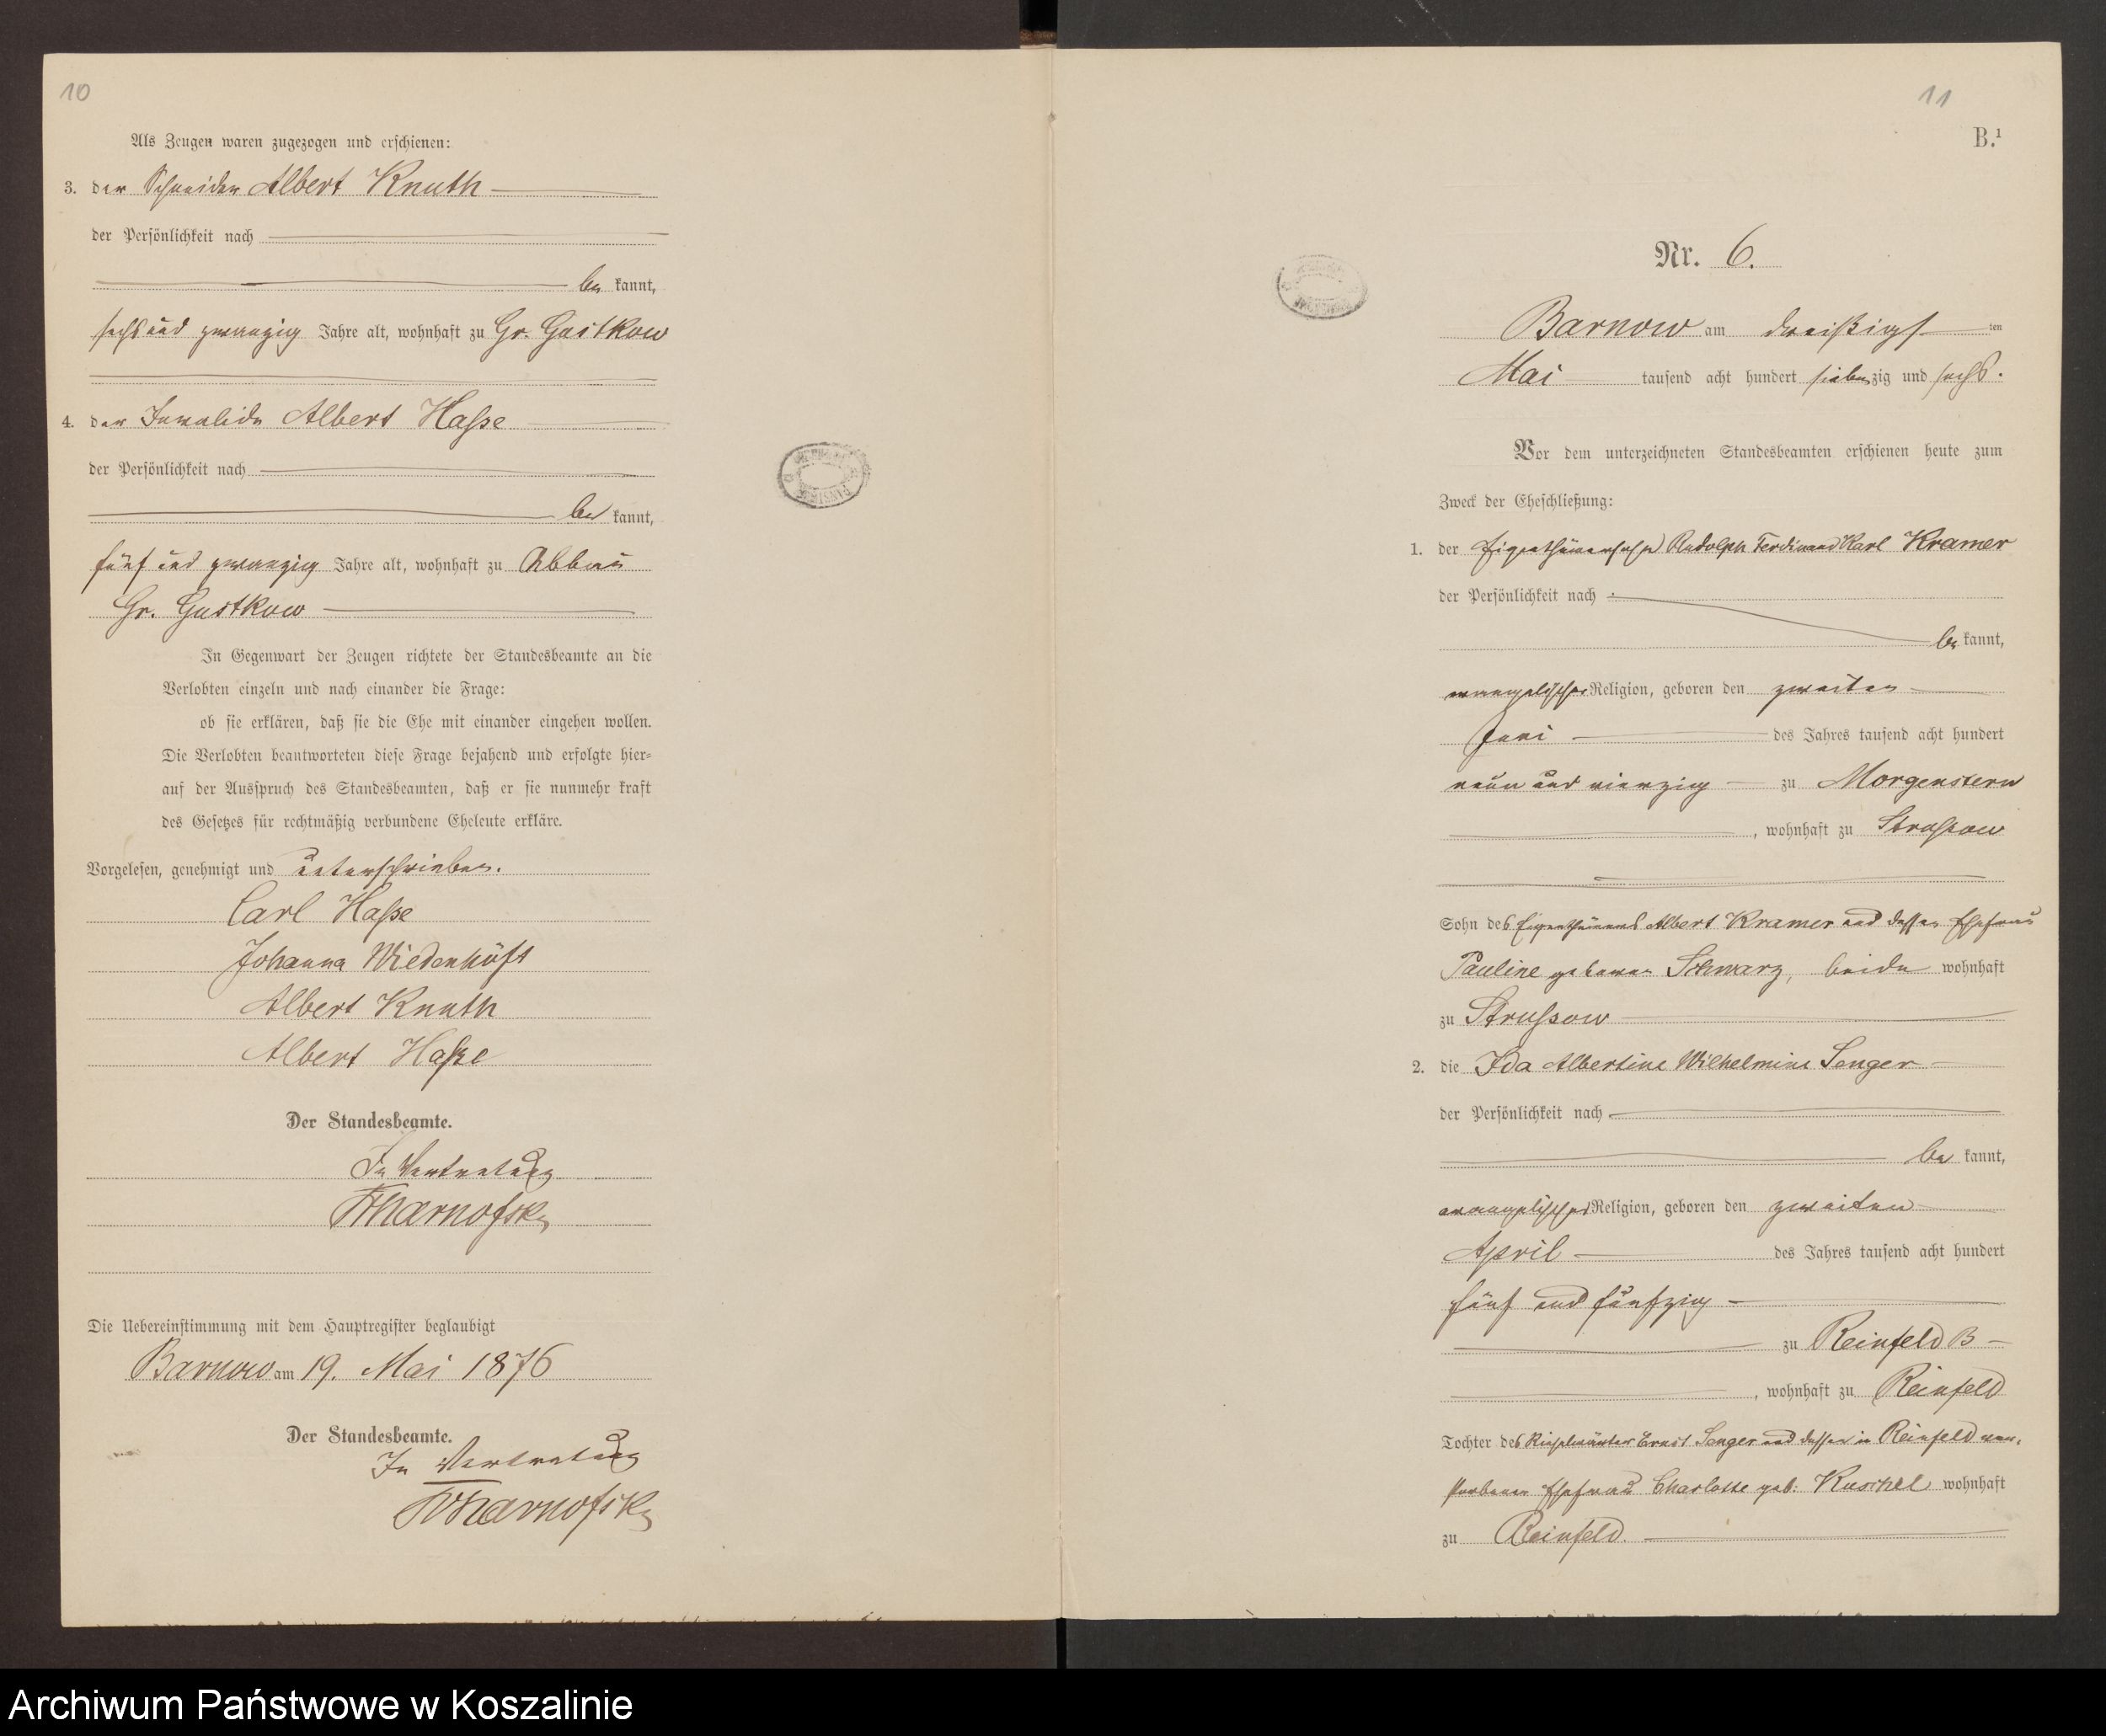 10
Als Zeugen waren zugezogen und erschienen:
3. der Schneider Albert Knuth
der Persönlichkeit nach
be kannt,
sechs und zwanzig Jahre alt, wohnhaft zu Gr. Gustkow
4. der Invalide Albert Haſse
der Persönlichkeit nach
be kannt,
fünf und zwanzig Jahre alt, wohnhaft zu Abbau
Gr. Gustkow
In Gegenwart der Zeugen richtete der Standesbeamte an die
Verlobten einzeln und nach einander die Frage:
ob sie erklären, daß sie die Ehe mit einander eingehen wollen.
Die Verlobten beantworteten diese Frage bejahend und erfolgte hier=
auf der Ausspruch des Standesbeamten, daß er sie nunmehr kraft
des Gesetzes für rechtmäßig verbundene Eheleute erkläre.
Vorgelesen, genehmigt und unterschrieben.
Carl Haſse
Johanna Wiedenhöft
Albert Knuth
Albert Haſse
Der Standesbeamte.
In Vertretung
Die Uebereinstimmung mit dem Hauptregister beglaubigt
Barnow am 19. Mai 1876
Der Standesbeamte.
In Vertretung
11
B.¹
Nr. 6.
Barnow am dreißigs ten
Mai tausend acht hundert sieben zig und sechs.
Vor dem unterzeichneten Standesbeamten erschienen heute zum
Zweck der Eheschließung:
1. der Eigenthümersohn Rudolph Ferdinand Karl Kramer
der Persönlichkeit nach
be kannt,
evangelischer Religion, geboren den zweiten
Juni des Jahres tausend acht hundert
neun und vierzig zu Morgenstern
, wohnhaft zu Struſsow
Sohn des Eigenthümers Albert Kramer und dessen Ehefrau
Pauline geborene Schwarz, beide wohnhaft
zu Struſsow
2. die Ida Albertine Wilhelmine Senger
der Persönlichkeit nach
be kannt,
evangelischer Religion, geboren den zweiten
April des Jahres tausend acht hundert
fünf und fünfzig
zu Reinfeld B
, wohnhaft zu Reinfeld
Tochter des Rieselwärter Ernst Senger und dessen in Reinfeld ver-
storbenen Ehefrau Charlotte geb. Kuschel wohnhaft
zu Reinfeld.
Archiwum Państwowe w Koszalinie